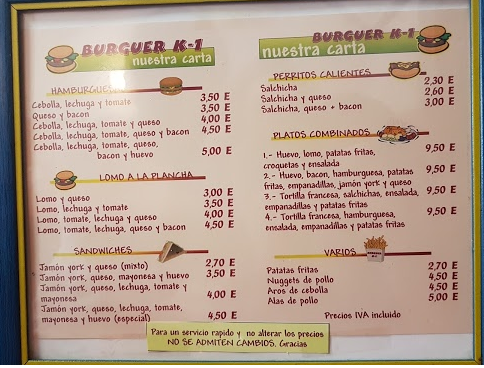 BURGUER K-1
nuestra carta
HAMBURGUES
Cebolla, lechuga y tomate 3,50 E
Queso y bacon 3,50 E
Cebolla, lechuga, tomate y queso 4,00 E
Cebolla, lechuga, tomate, queso y bacon 4,50 E
Cebolla, lechuga, tomate, queso,
bacon y huevo 5,00 E
LOMO A LA PLANCHA
Lomo y queso 3,00 E
Lomo, lechuga y tomate 3,50 E
Lomo, tomate, lechuga y queso 4,00 E
Lomo, tomate, lechuga, queso y bacon 4,50 E
SANDWICHES
Jamón york y queso (mixto) 2,70 E
Jamón york, queso, mayonesa y huevo 3,50 E
Jamón york, queso, lechuga, tomate y
mayonesa 4,00 E
Jamón york, queso, lechuga, tomate,
mayonesa y huevo (especial) 4,50 E
BURGUER K-1
nuestra carta
PERRITOS CALIENTES
Salchicha 2,30 E
Salchicha y queso 2,60 E
Salchicha, queso + bacon 3,00 E
PLATOS COMBINADOS
1.- Huevo, lomo, patatas fritas, 9,50 E
croquetas y ensalada
2.- Huevo, bacon, hamburguesa, patatas 9,50 E
fritas, empanadillas, jamón york y queso
3.- Tortilla francesa, salchichas, ensalada, 9,50 E
empanadillas y patatas fritas
4.- Tortilla francesa, hamburguesa, 9,50 E
ensalada, empanadillas y patatas fritas
VARIOS
Patatas fritas 2,70 E
Nuggets de pollo 4,50 E
Aros de cebolla 4,50 E
Alas de pollo 5,00 E
Precios IVA incluido
Para un servicio rapido y no alterar los precios
NO SE ADMITEN CAMBIOS. Gracias